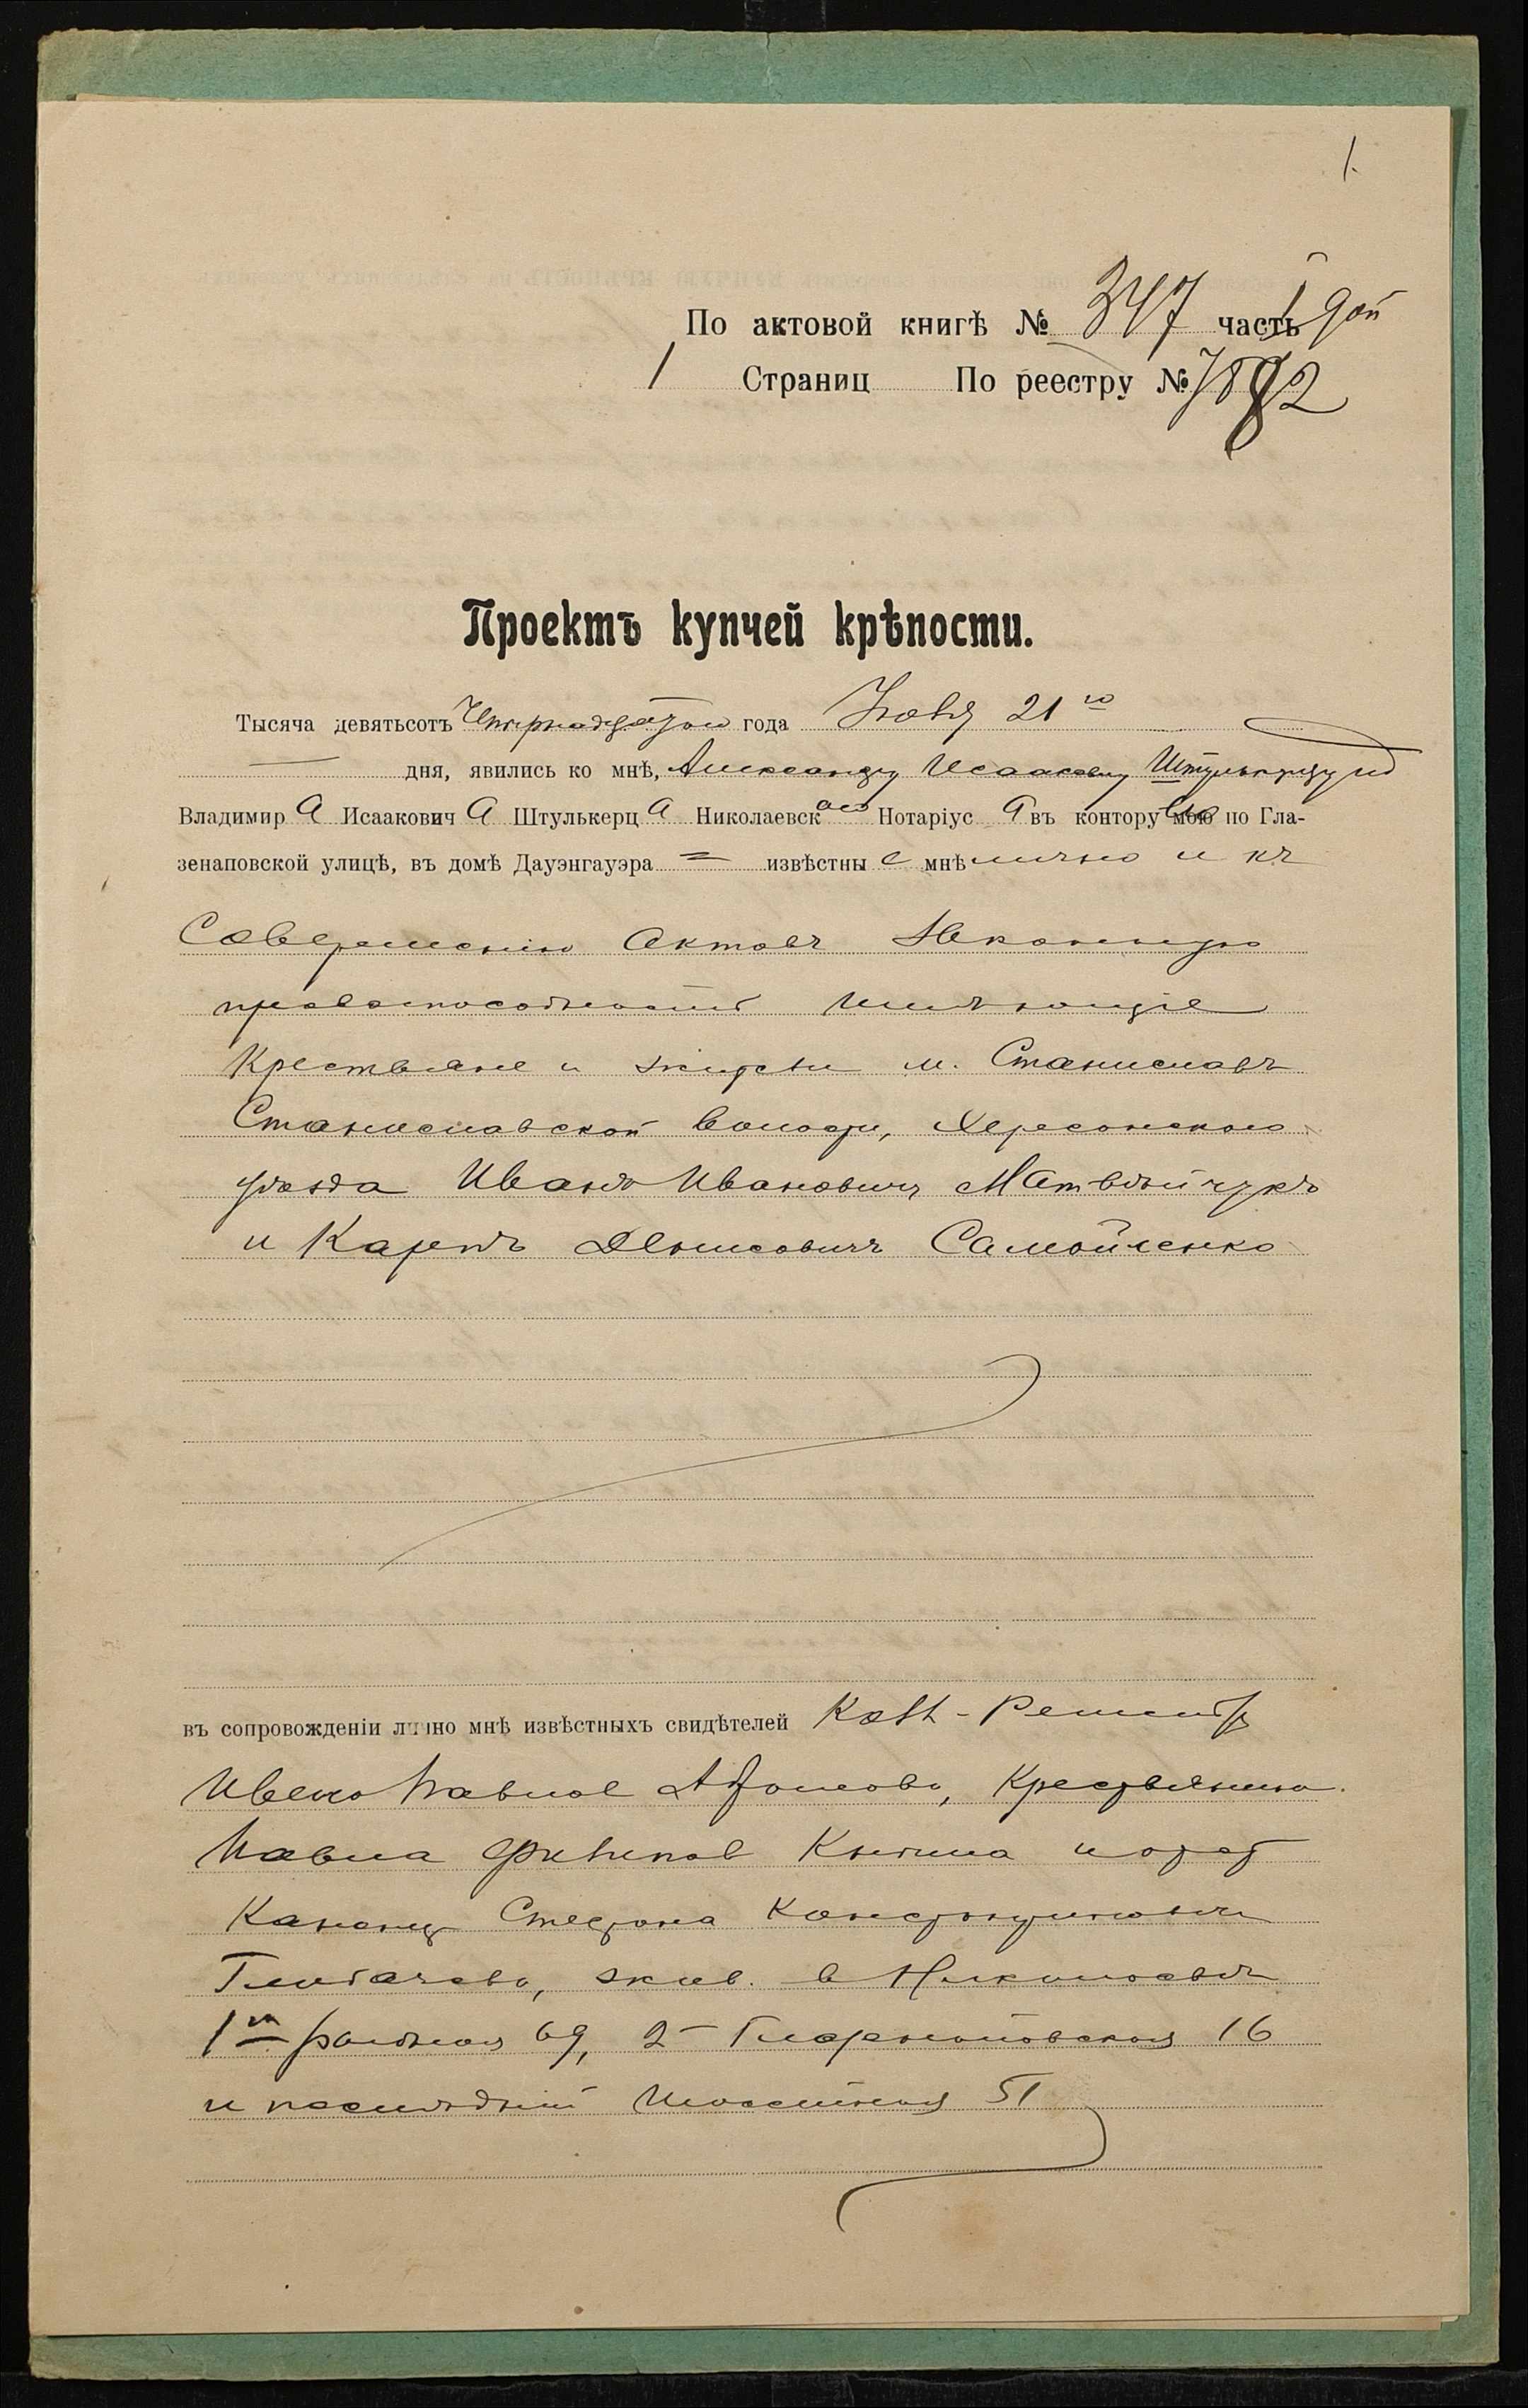 1.
По актовой книгѣ № 347 часть I дой
1 Страниц По реестру № 7882
Проектъ купчей крѣпости.
Тысяча девятьсотъ Четырнадцатого года 21 го
дня, явились ко мнѣ, Александру Исааковичу Штулькерцу
Владимир а Исаакович а Штулькерц а Николаевск аго Нотаріус а въ контору мою по Гла-
зенаповской улицѣ, въ домѣ Дауэнгауэра = извѣстны е мнѣ лично и къ
Совершенію актовъ законную
правоспособность имѣющіе
Крестьяне и жители м. Станиславъ
Станиславской волости, Херсонскаго
уѣзда Иванъ Ивановичъ Матвѣйчукъ
и Карпъ Денисовичъ Самойленко
въ сопровожденіи лично мнѣ извѣстныхъ свидѣтелей Колл-Регистр
Ивана Павлов Крестьянина
Павла Филипов и отст
Степана Константиновича
жив. в Николаевѣ
1й 69, 2 16
и послѣдній 51